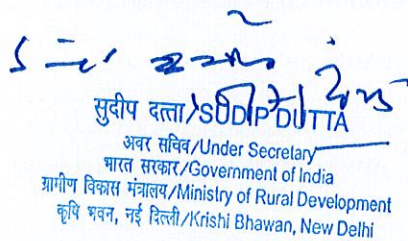 सुदीप दत्ता/SUDIP DUTTA
अवर सचिव/Under Secretary
भारत सरकार/Government of India
ग्रामीण विकास मंत्रालय/Ministry of Rural Development
कृषि भवन, नई दिल्ली/Krishi Bhawan, New Delhi